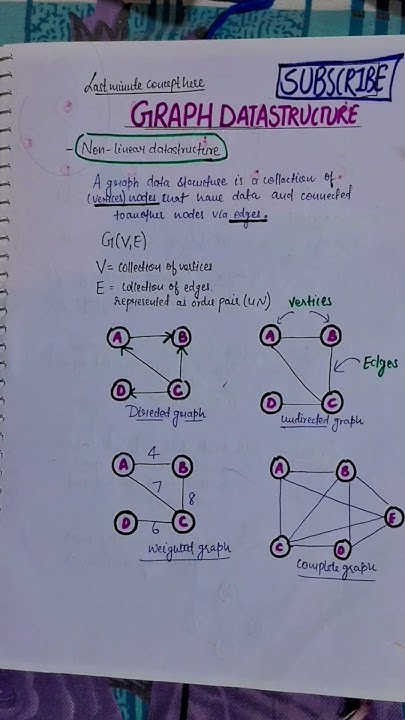 Last minute concept here
SUBSCRIBE
GRAPH DATASTRUCTURE
- Non-linear datastructure
A graph data structure is a collection of
(vertices) nodes that have data and connected
to another nodes via edges.
G(V,E)
V = collection of vertices
E = collection of edges.
represented as order pair (U,V)
vertices
A B
C D
Directed graph
A B
Edges
D C
undirected graph
4
A B
7
8
D C
6
weighted graph
A B
E
C D
Complete graph